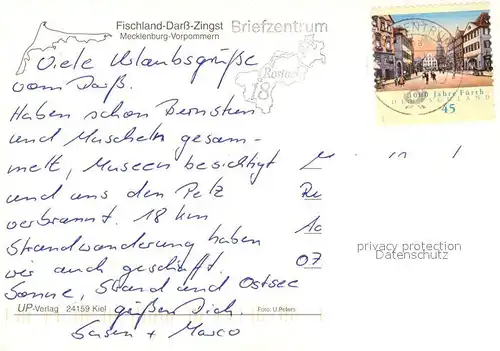 Fischland-Darß-Zingst
Mecklenburg-Vorpommern
Briefzentrum
18
1000 Jahre Fürth
DEUTSCHLAND
45
Viele Urlaubsgrüße
vom Darß.
Haben schon Bernstein
und Muscheln gesam-
melt, Museen besichtigt
und uns den Pelz
verbrannt. 18 km
Strandwanderung haben
wir auch geschafft.
Sonne, Strand und Ostsee
grüßen Dich.
Susen + Marco
10
07
privacy protection
Datenschutz
UP-Verlag 24159 Kiel
Foto: U.Peters